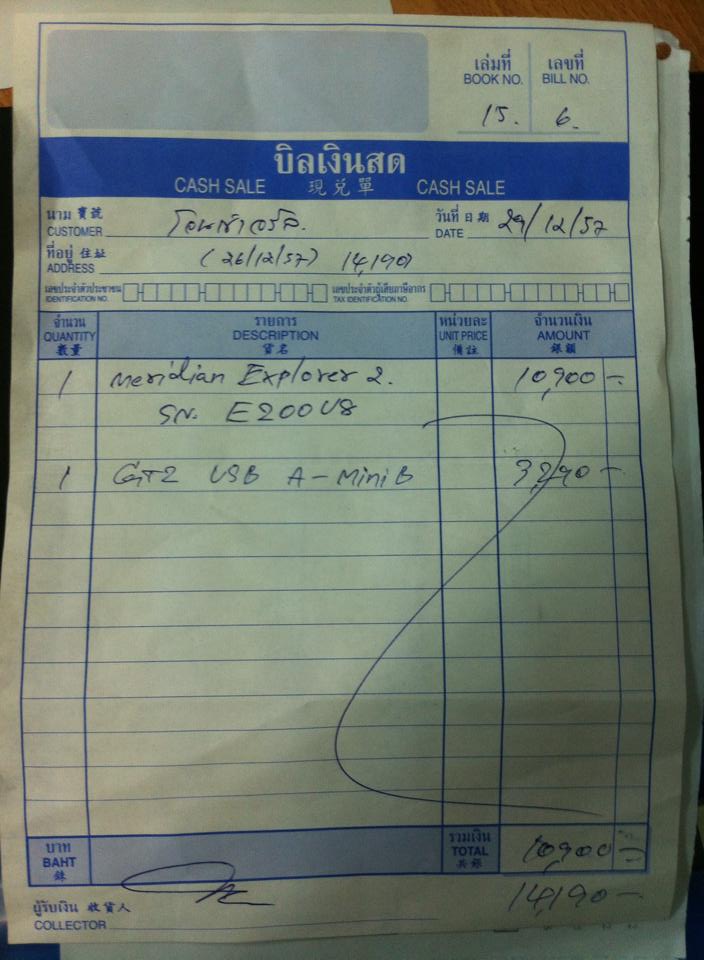 เล่มที่ เลขที่
BOOK NO. BILL NO.
15. 6.
บิลเงินสด
CASH SALE 現兌單 CASH SALE
นาม 寳號 วันที่ 日期
CUSTOMER DATE 29/12/57
ที่อยู่ 住址
ADDRESS (26/12/57) 14,190
เลขประจำตัวประชาชน เลขประจำตัวผู้เสียภาษีอากร
IDENTIFICATION NO. TAX IDENTIFICATION NO.
จำนวน รายการ หน่วยละ จำนวนเงิน
QUANTITY DESCRIPTION UNIT PRICE AMOUNT
數量 貨名 備註 銀額
1 Meridian Explorer 2. 10,900 -
SN. E200V8
1 USB A - Mini B 3,290 -
บาท รวมเงิน
BAHT TOTAL 10,900 -
銖 共銀
14,190 -
ผู้รับเงิน 收貨人
COLLECTOR